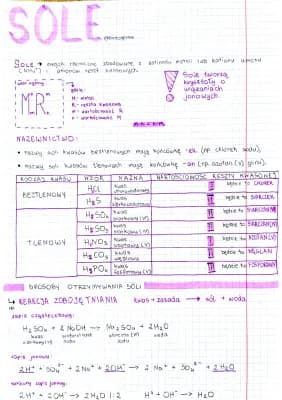 SOLE
SOLE → związki chemiczne zbudowane z kationów metali lub kationu amonu
i anionów reszt kwasowych.
Sole tworzą
kryształy o
wiązaniach
jonowych.
M - metal
R - reszta kwasowa
NAZEWNICTWO:
• nazwy soli kwasów beztlenowych mają końcówkę -ek (np. chlorek sodu),
• nazwy soli kwasów tlenowych mają końcówkę -an (np. azotan (V) ).
RODZAJ KWASU WZÓR NAZWA WARTOŚCIOWOŚĆ RESZTY KWASOWEJ
BEZTLENOWY HCl kwas chlorowodorowy I będzie to CHLOREK
H₂S kwas siarkowodorowy II będzie to SIARCZEK
TLENOWY H₂SO₄ kwas siarkowy (VI) II będzie to SIARCZAN(VI)
H₂SO₃ kwas siarkowy (IV) II będzie to SIARCZAN(IV)
HNO₃ kwas azotowy (V) I będzie to AZOTAN(V)
H₂CO₃ kwas węglowy II będzie to WĘGLAN
H₃PO₄ kwas fosforowy (V) III będzie to FOSFORAN(V)
SPOSOBY OTRZYMYWANIA SOLI
↳ REAKCJA ZOBOJĘTNIANIA kwas + zasada → sól + woda
zapis cząsteczkowy:
H₂SO₄ + 2 NaOH → Na₂SO₄ + 2H₂O
zapis jonowy:
2H⁺ + SO₄²⁻ + 2 Na⁺ + 2OH⁻ → 2 Na⁺ + SO₄²⁻ + 2 H₂O
skrócony zapis jonowy:
2H⁺ + 2OH⁻ → 2H₂O |:2 H⁺ + OH⁻ → H₂O